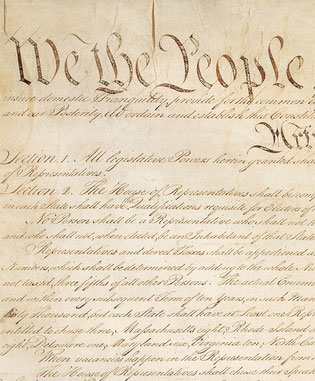 We the People,
insure domestic Tranquility, provide for the common
and our Posterity, do ordain and establish this Constitu
Art
Section. 1. All legislative Powers herein granted shal
of Representatives.
Section. 2. The House of Representatives shall be com
in each State shall have Qualifications requisite for Electors of
No Person shall be a Representative who shall not h
and who shall not, when elected, be an Inhabitant of that State
Representatives and direct Taxes shall be apportioned a
Numbers, which shall be determined by adding to the whole Nu
not taxed, three fifths of all other Persons. The actual Enume
and within every subsequent Term of ten Years, in such Man
thirty Thousand, but each State shall have at Least one Repre
entitled to chuse three, Massachusetts eight, Rhode Island a
eight, Delaware one, Maryland six, Virginia ten, North Ca
When vacancies happen in the Representation from
The House of Representatives shall chuse their Spea